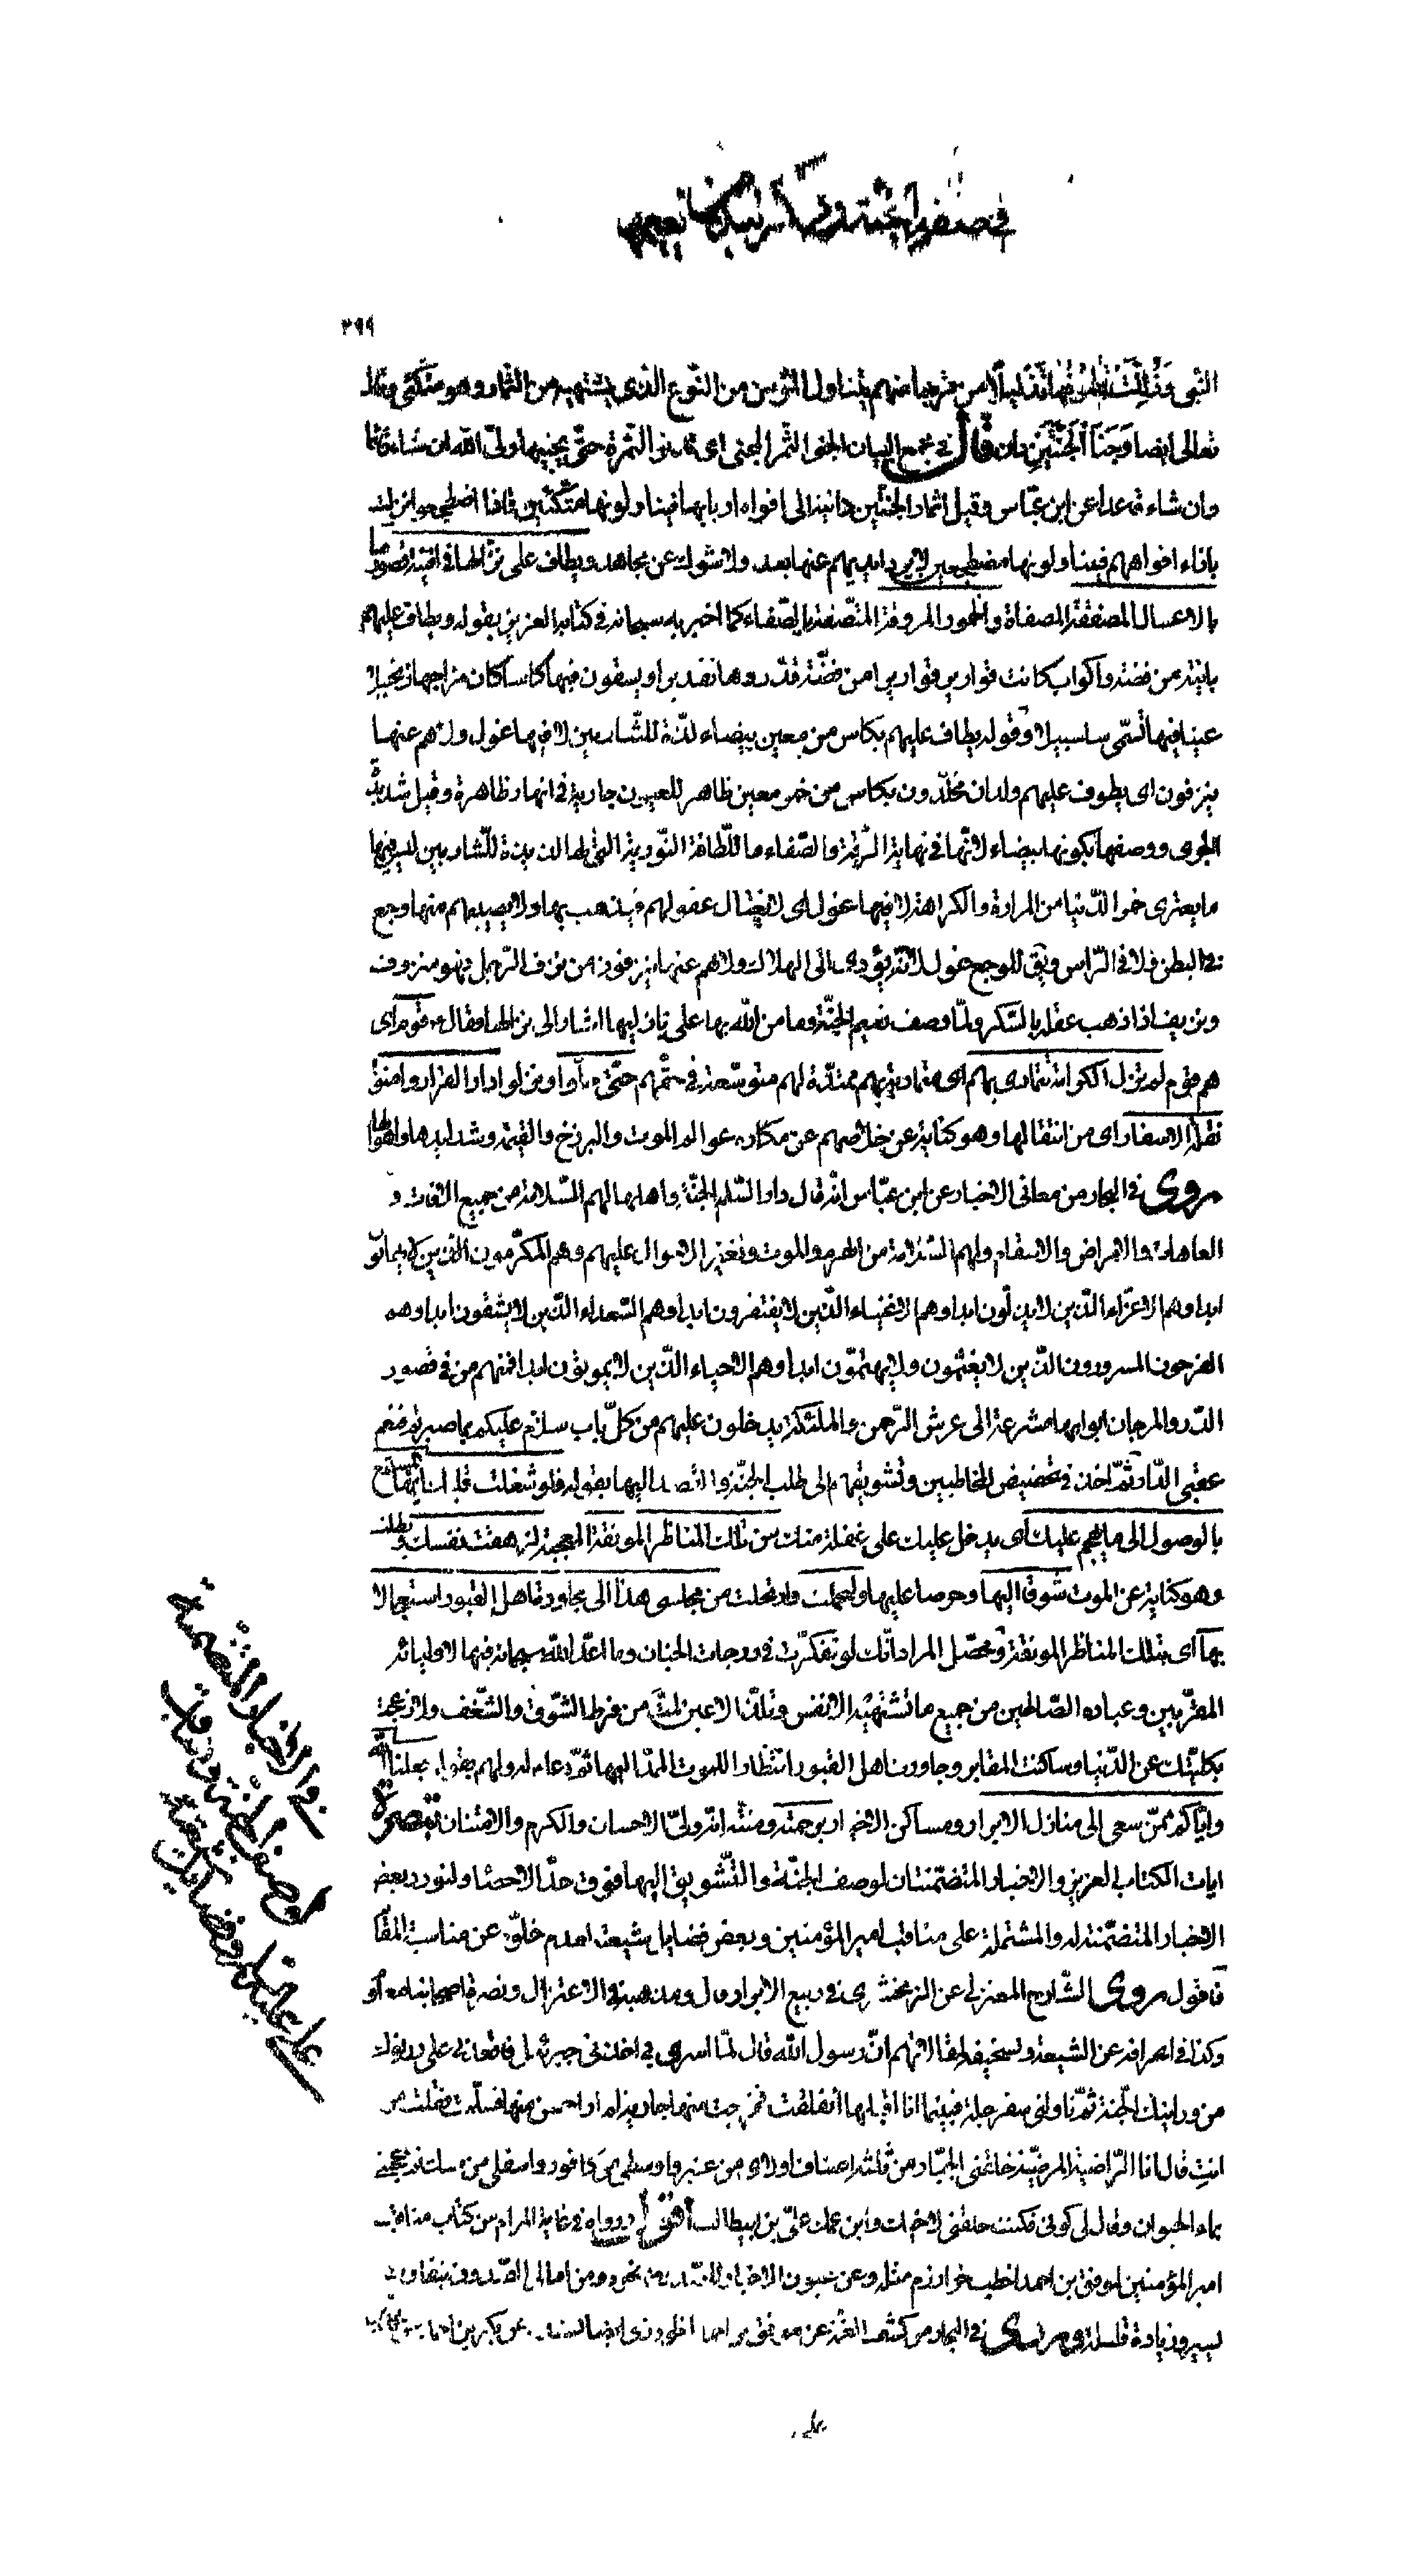 ٣٩٩
النبى وَذُلِّلَتْ قُطُوفُهَا تَذْلِيلًا من قربها منهم يتناول المؤمن من النّوع الّذى يشتهيه من الثمار وهو متّكئ وقال
تعالى ايضا وَجَنَا الْجَنَّتَيْنِ دان قال فى مجمع البيان الجنى الثمر المجتنى اى تدنو الثمرة حتّى يجنيها ولىّ الله ان شاء قائما
وان شاء قاعدا عن ابن عبّاس وقيل اثمار الجنّتين دانية الى افواه اربابها فيتناولونها متّكئين فاذا اضطجعوا نزلت
بازاء افواههم فيتناولونها مضطجعين لا يرد ايديهم عنها بعد ولا شوك عن مجاهد ويطاف على نزّالها فى افنية قصورها
بالاعسال المصفّقة المصفاة والخمور المروقة المتّصفة بالصّفاء كما اخبر به سبحانه فى كتابه العزيز بقوله ويطاف عليهم
بانية من فضّة واكواب كانت قوارير قواريرا من فضّة قدّروها تقديرا ويسقون فيها كاسا كان مزاجها زنجبيلا
عينا فيها تسمّى سلسبيلا وقوله يطاف عليهم بكاس من معين بيضاء لذّة للشّاربين لا فيها غول ولا هم عنها
ينزفون اى يطوف عليهم ولدان مخلّدون بكاس من خمر معين ظاهر للعيون جارية فى انهار ظاهرة وقيل شديدة
الجرى ووصفها بكونها بيضاء لانّها فى نهاية الرّقة والصّفاء مع اللّطافة النّورية التى لها لذيذة للشّاربين ليس فيها
ما يعترى خمر الدّنيا من المرارة والكراهة لا فيها غول اى لا يغتال عقولهم فيذهب بها ولا يصيبهم منها وجع
فى البطن ولا فى الرّاس ويق للوجع غول لانّه يؤدى الى الهلاك ولا هم عنها ينزفون من نزف الرّجل فهو منزوف
ونزيف اذا ذهب عقله بالسّكر ولمّا وصف نعيم الجنّة وما من الله بها على نازليها اشار الى نزالها فقال قوم اى
هم قوم لم تزل الكرامة تتمادى بهم اى متمادية بهم ممتدّة لهم متوسّعة فى حقّهم حتّى حلّوا ونزلوا دار القرار وامنوا
نقلة الاسفار اى من انتقالها وهو كناية عن خلاصهم عن مكاره عوالم الموت والبرزخ والقيمة وشدايدها واهوالها
روى فى البحار من معانى الاخبار عن ابن عبّاس انّه قال دار السّلم الجنّة واهلها لهم السّلامة من جميع الافات و
العاهات والامراض والاسقام ولهم السّلامة من الهرم والموت وتغيّر الاحوال عليهم وهم المكرّمون الّذين لا يهانون
ابدا وهم الاعزّاء الّذين لا يذلّون ابدا وهم الاغنياء الّذين لا يفتقرون ابدا وهم السّعداء الّذين لا يشقون ابدا وهم
الفرحون المسرورون الّذين لا يغتمّون ولا يهتمّون ابدا وهم الاحياء الّذين لا يموتون ابدا فمنهم من فى قصور
الدّر والمرجان ابوابها مشرعة الى عرش الرّحمن والملئكة يدخلون عليهم من كلّ باب سلام عليكم بما صبرتم فنعم
عقبى الدّار ثمّ اخذ فى تحضيض المخاطبين وتشويقهم الى طلب الجنّة والقصد اليها بقوله فلو شغلت قلبك ايها المستمع
بالوصول الى ما يهجم عليك اى يدخل عليك على غفلة منك من تلك المناظر المونقة المعجبة لزهقت نفسك وبطلت
وهو كناية عن الموت شوقا اليها وحرصا عليها ولتحملت وارتحلت من مجلسى هذا الى مجاورة اهل القبور استعجالا
بها اى بتلك المناظر المونقة ومحصّل المراد انّك لو تفكّرت فى درجات الجنان وما اعدّ الله سبحانه فيها لاوليائه
المقرّبين وعباده الصّالحين من جميع ما تشتهيه الانفس وتلذّ الاعين لمتّ من فرط الشّوق والشّغف ولانزعجت
بكلّيتك عن الدّنيا وساكنت المقابر وجاورت اهل القبور انتظارا للموت الممدّ اليها ثمّ دعا له ولهم بقوله جعلنا الله
وايّاكم ممّن سعى الى منازل الابرار ومساكن الاخيار برحمته ومنّه انّه ولىّ الاحسان والكرم والامتنان تبصرة
ايات الكتاب العزيز والاخبار المتضمّنتان لوصف الجنّة والتّشويق اليها فوق حدّ الاحصاء ولنورد بعض
الاخبار المتضمّنة له والمشتملة على مناقب امير المؤمنين وبعض فضايل شيعته لعدم خلوّه عن مناسبة المقام
فاقول روى الشّارح المعتزلى عن الزمخشرى فى ربيع الابرار قال ومذهبه فى الاعتزال ونصرة اصحابنا معلوم
وكذا فى انحرافه عن الشيعة وتسخيفه لمقالاتهم انّ رسول الله قال لمّا اسرى بى اخذنى جبرئيل فاقعدنى على درنوك
من درانيك الجنّة ثمّ ناولنى سفرجلة فبينما انا اقلبها انفلقت فخرجت منها جارية لم ار احسن منها فسلّمت فقلت من
انت قالت انا الرّاضية المرضيّة خلقنى الجبّار من ثلثة اصناف اعلاى من عنبر واوسطى من كافور واسفلى من مسك ثم عجننى
بماء الحيوان وقال لى كونى فكنت خلقنى لاخيك وابن عمك علىّ بن ابيطالب اقول ورواه فى غاية المرام من كتاب مناقب
امير المؤمنين لموفق بن احمد اخطب خوارزم مثله وعن عيون الاخبار للصّدوق نحوه ومن امالى الصّدوق بتفاوت
يسير وزيادة قليلة وروى فى البحار من كشف الغمّة عن موفق بن احمد الخوارزمى
فى الاخبار المتضمنة
لوصف الجنّة ومناقب
على عليه السلام وفضايل شيعته